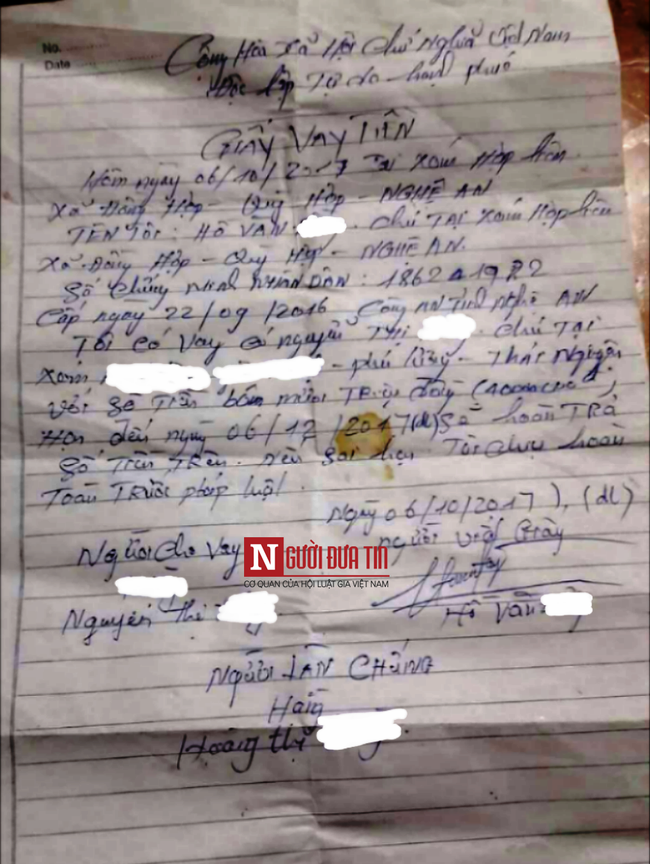 No.
Date
Cộng Hòa Xã Hội Chủ Nghĩa Việt Nam
Độc lập Tự do - hạnh phúc
GIẤY VAY TIỀN
Hôm ngày 06/10/2017 Tại Xóm Hợp tiến
Xã Đồng Hợp - Quỳ Hợp - NGHỆ AN
TÊN TÔI: HỒ VĂN chú TẠI Xóm Hợp tiến
Xã Đồng Hợp - Quỳ Hợp - NGHỆ AN.
Số Chứng minh NHÂN DÂN:
Cấp ngày 22/09/2016 Công AN Tỉnh Nghệ AN
Tôi có vay cô nguyễn THỊ chú TẠI
Xom - phú lương - Thái Nguyên
với số Tiền bốn mươi Triệu đồng
Hẹn đến ngày 06/12/2017 (dl) sẽ hoàn TRẢ
số Tiền Trên. nếu sai hẹn Tôi chịu hoàn
Toàn Trước pháp luật.
Ngày 06/10/2017), (dl)
Người Cho Vay người viết Giấy
NGƯỜI ĐƯA TIN
CƠ QUAN CỦA HỘI LUẬT GIA VIỆT NAM
Nguyễn Thị Hồ Văn
NGƯỜI LÀM CHỨNG
Hoàng thị